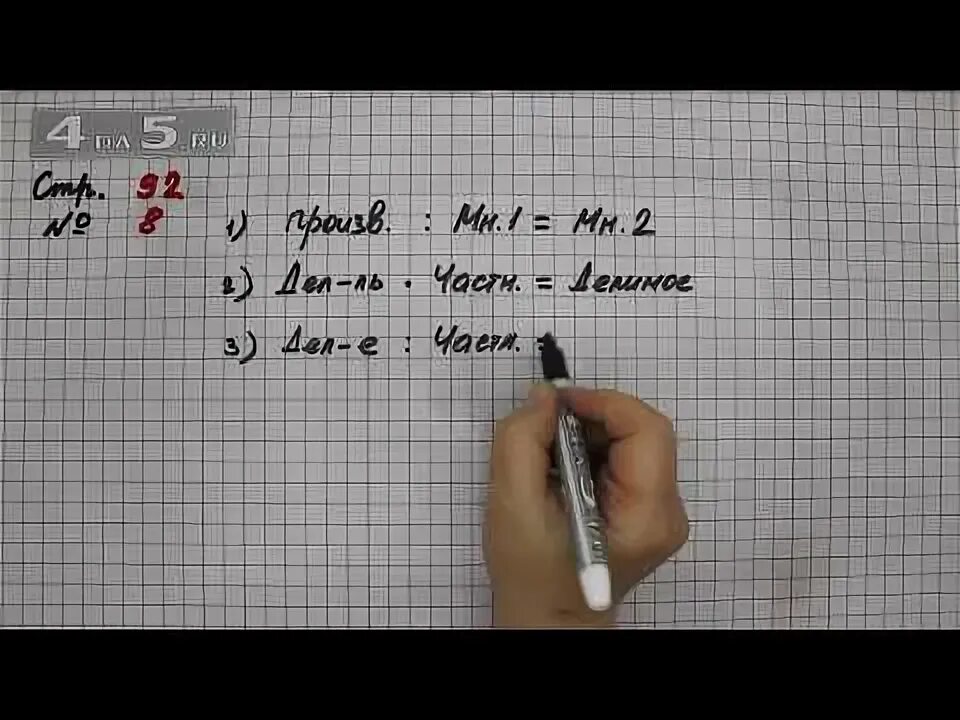 4 на 5.RU
Стр. 92
№ 8
1) Произв. : Мн.1 = Мн.2
2) Дел-ль · Частн. = Делимое
3) Дел-е : Частн. =